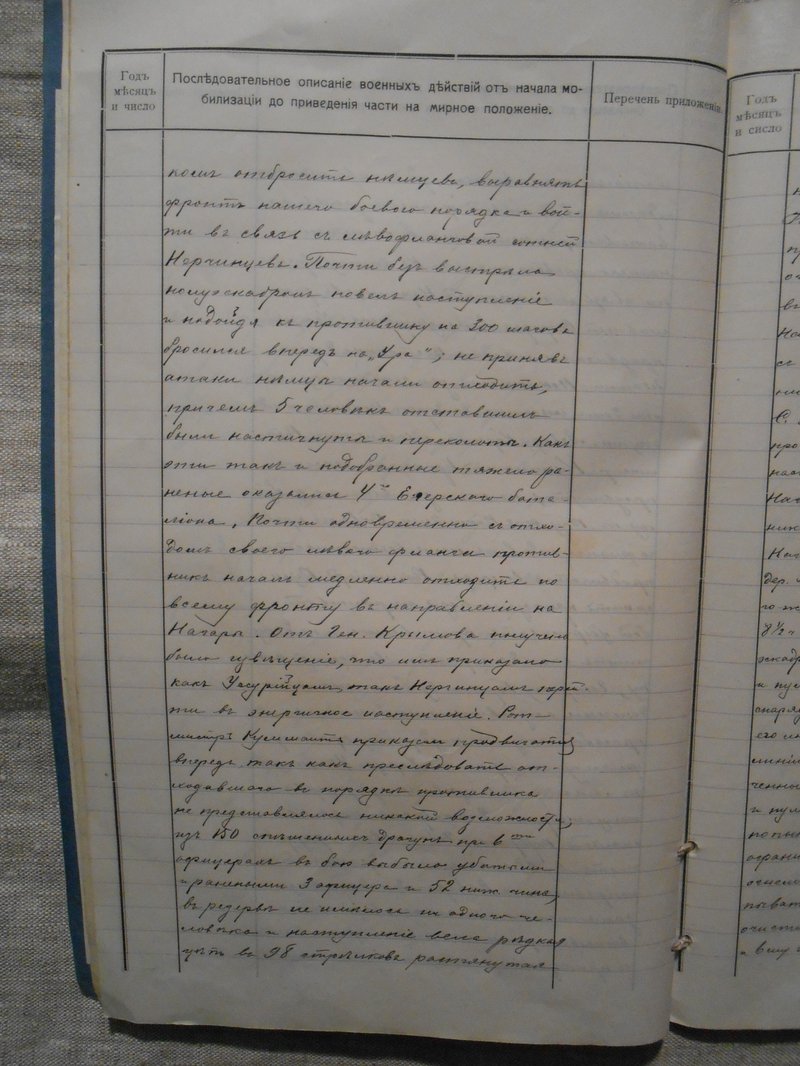 Годъ
мѣсяцъ
и число
Послѣдовательное описаніе военныхъ дѣйствій отъ начала мо-
билизаціи до приведенія части на мирное положеніе.
Перечень приложеній.
Годъ
мѣсяцъ
и сисло
комъ отбросить нѣмцевъ, выравнять
фронтъ нашего боевого порядка и вой-
ти въ связь съ лѣвофланговой сотней
Нерчинцевъ. Почти безъ выстрѣла
полуэскадронъ повелъ наступленіе
и подойдя къ противнику на 300 шаговъ
бросился впередъ на „Ура"; не принявъ
атаки нѣмцы начали отходить,
причемъ 5 человѣкъ отставшихъ
были настигнуты и переколоты. Какъ
эти такъ и подобранные тяжело ра-
неные оказались 4го Егерского бата-
ліона. Почти одновременно съ отхо-
домъ своего лѣваго фланга против-
никъ началъ медленно отходить по
всему фронту въ направленіи на
Нагоры. Отъ Ген. Крымова получено
было извѣщеніе, что имъ приказано
какъ Уссурійцамъ, такъ Нерчинцамъ перей-
ти въ энергичное наступленіе. Рот-
мистръ приказалъ продвигаться
впередъ, такъ какъ преслѣдовать от-
ходившаго въ порядкѣ противника
не представлялось никакой возможности;
изъ 150 спѣшенныхъ драгунъ при 6ти
офицерахъ въ бою выбыло убитыми
и ранеными 3 офицера и 52 ниж. чина,
въ резервѣ не имѣлось ни одного че-
ловѣка и наступленіе вела рѣдкая
цѣпь въ 98 стрѣлковъ растянутая